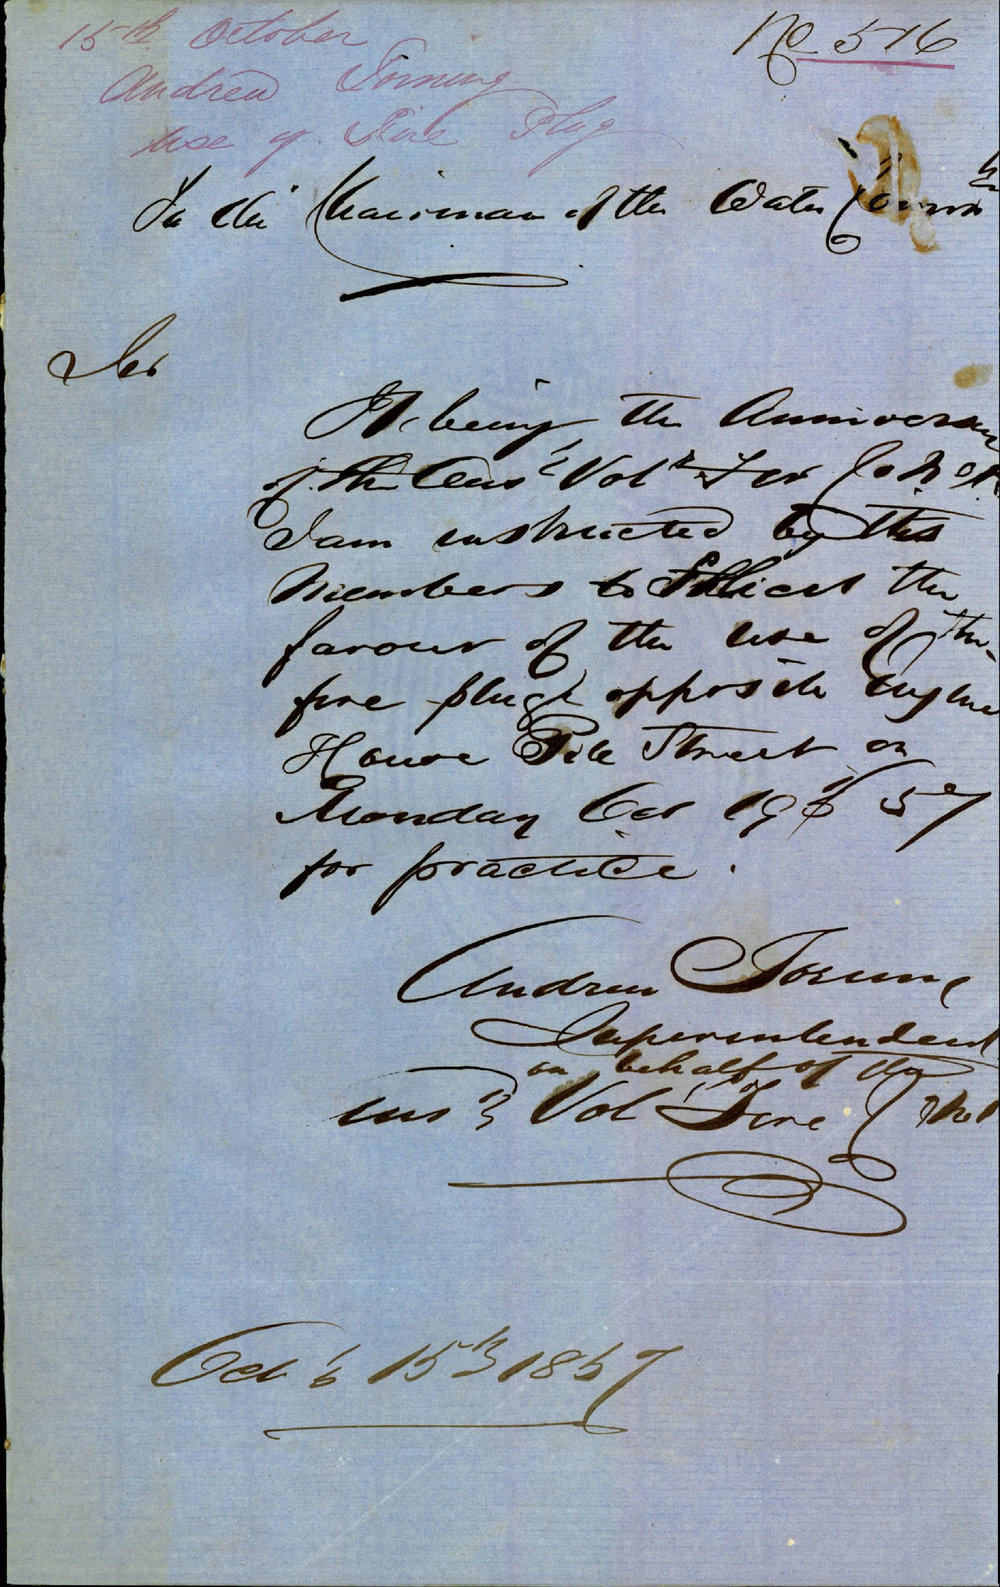 No 516
15th October
Andrew Torning
use of Fire Plug
To the Chairman of the Water Comm
Sir
It being the Anniversary
of the Aus Vol Fire Co No 1
I am instructed by the
Members to Sollicit the
favour of the use of the
fire plug opposite Engine
House Pitt Street on
Monday Oct 19th 57
for practice.
Andrew Torning
Superintendent
on behalf of the
Aus Vol Fire C No 1
Oct 15th 1857